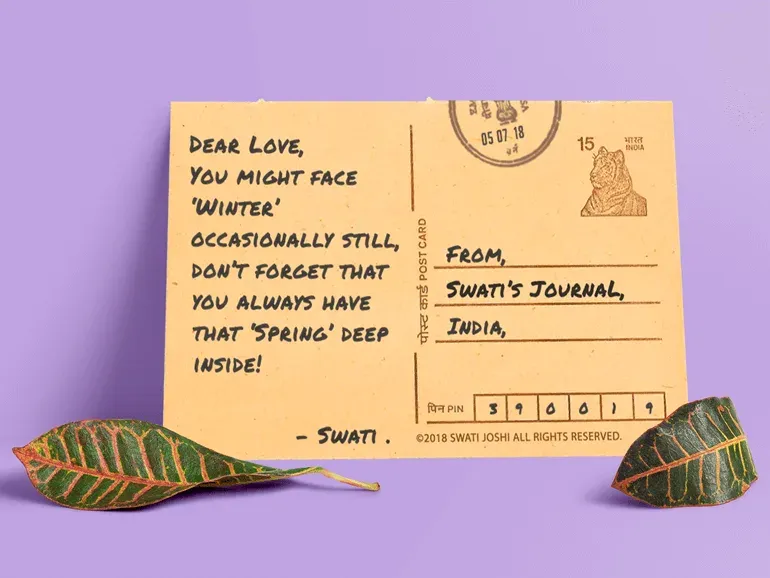 DEAR LOVE,
YOU MIGHT FACE
'WINTER'
OCCASIONALLY STILL,
DON'T FORGET THAT
YOU ALWAYS HAVE
THAT 'SPRING' DEEP
INSIDE!
- SWATI.
पोस्ट कार्ड POST CARD
05 07 18
15 भारत
INDIA
FROM,
SWATI'S JOURNAL,
INDIA,
पिन PIN 3 9 0 0 1 9
©2018 SWATI JOSHI ALL RIGHTS RESERVED.